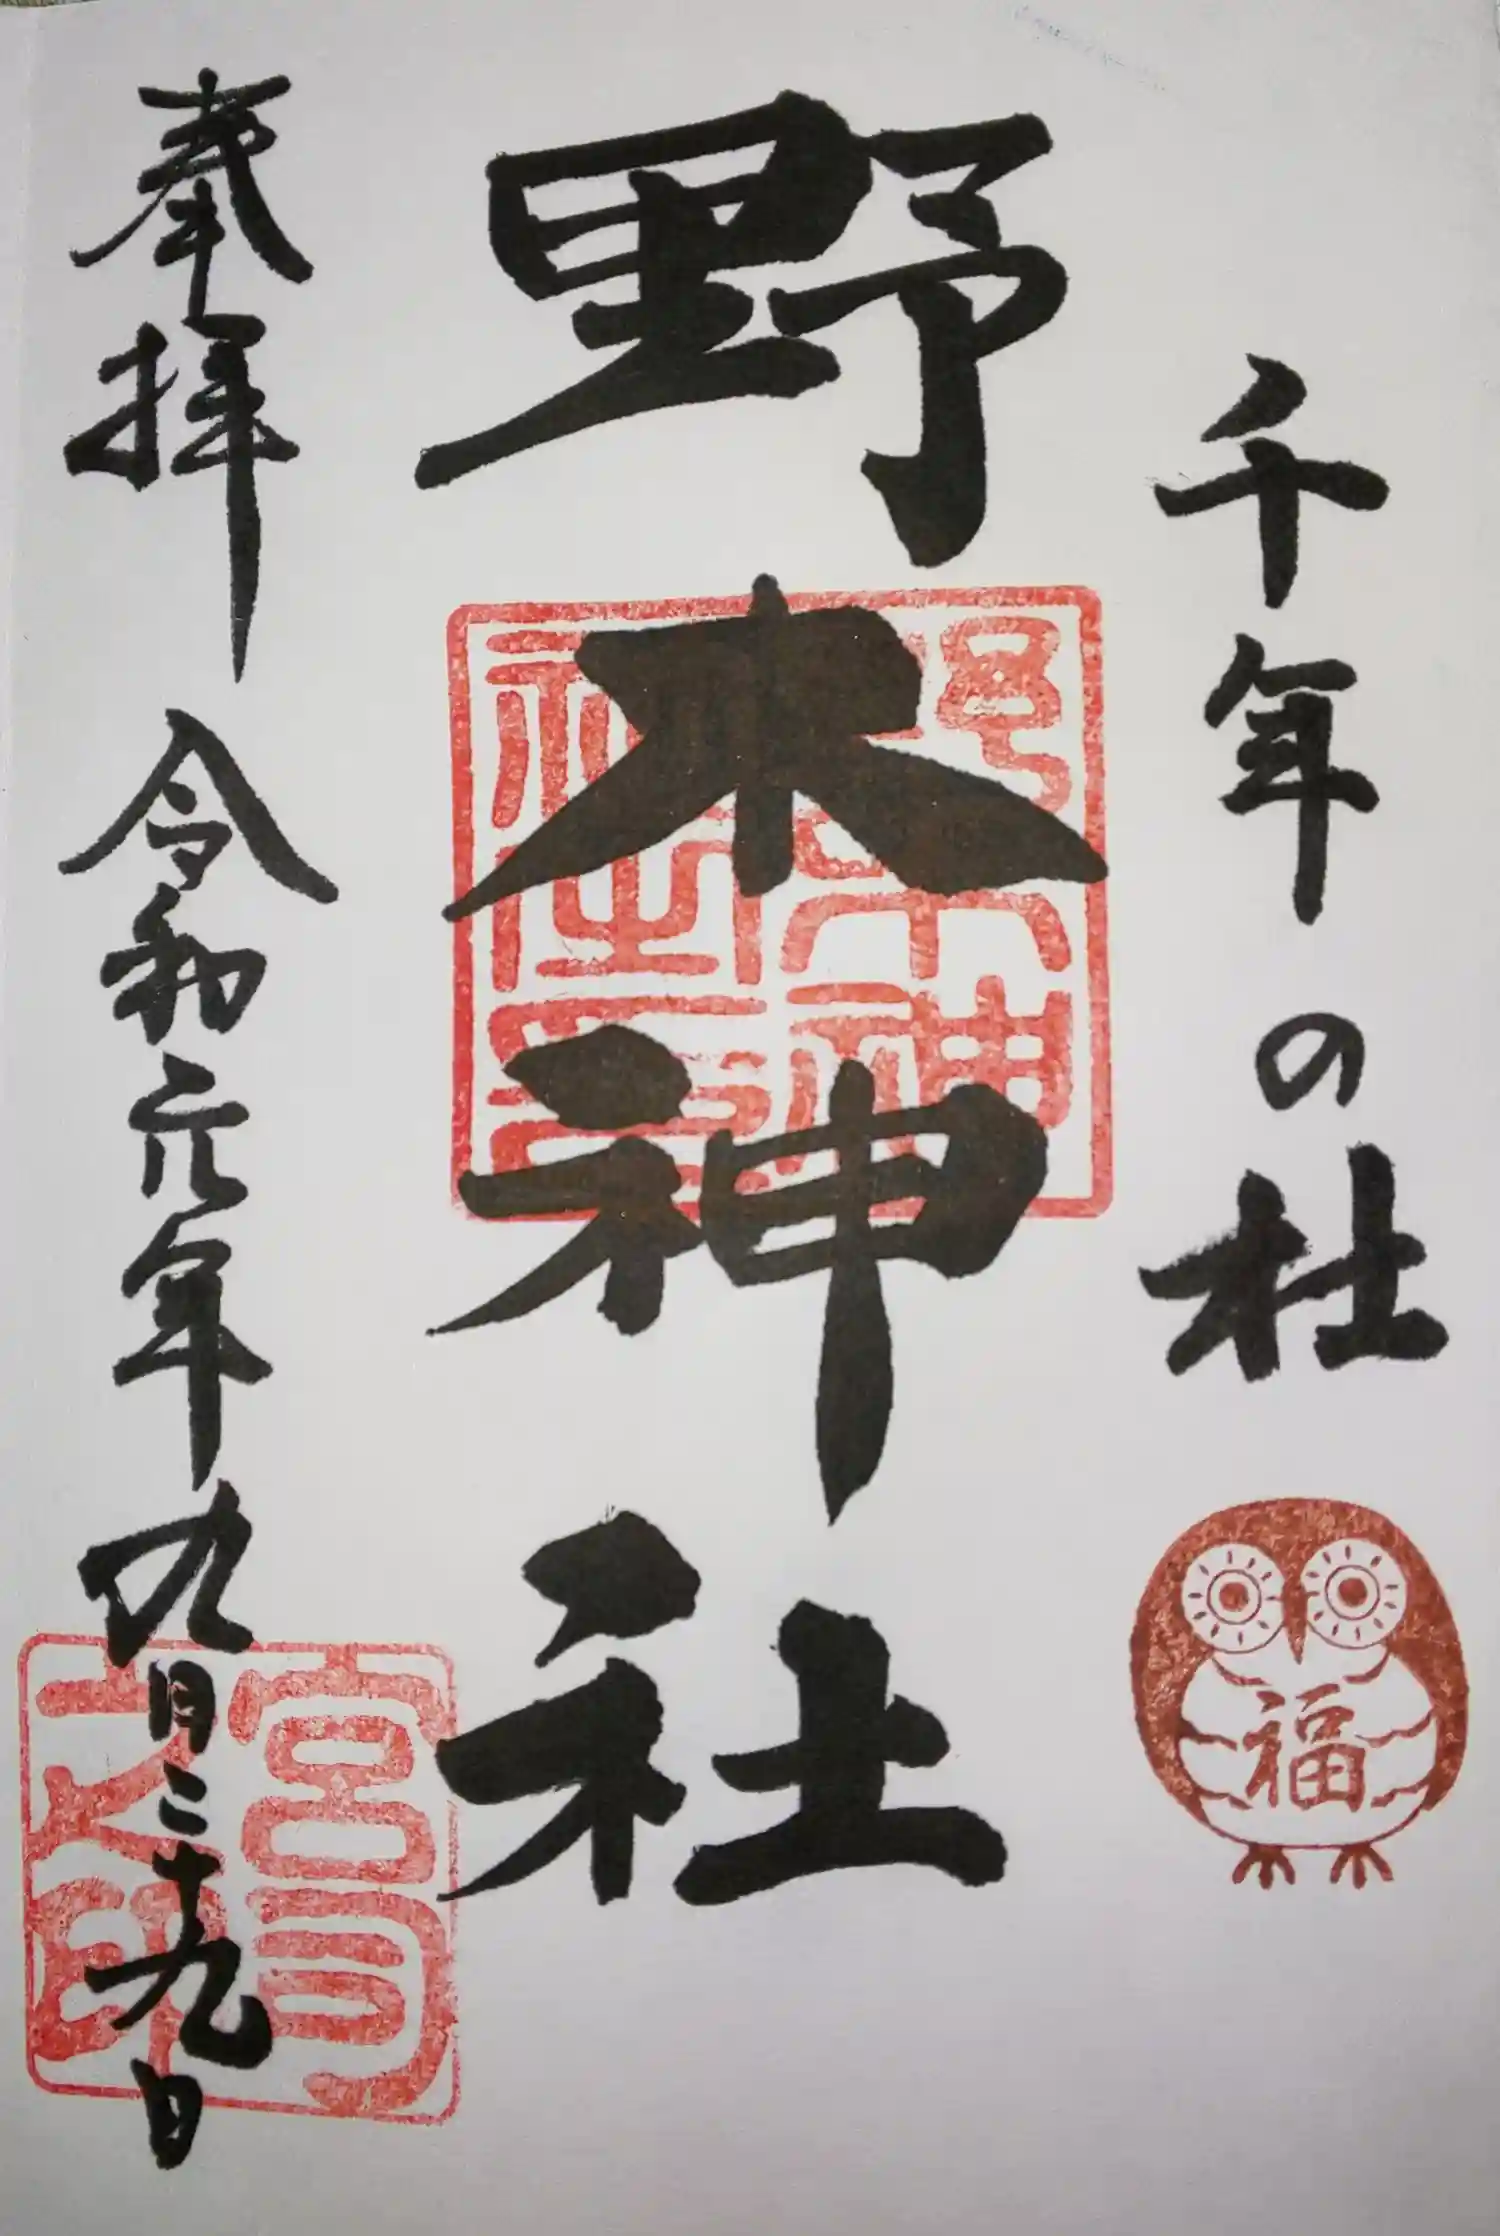 千年の杜
福
野木神社
奉拝 令和元年九月二十九日
宮司之印